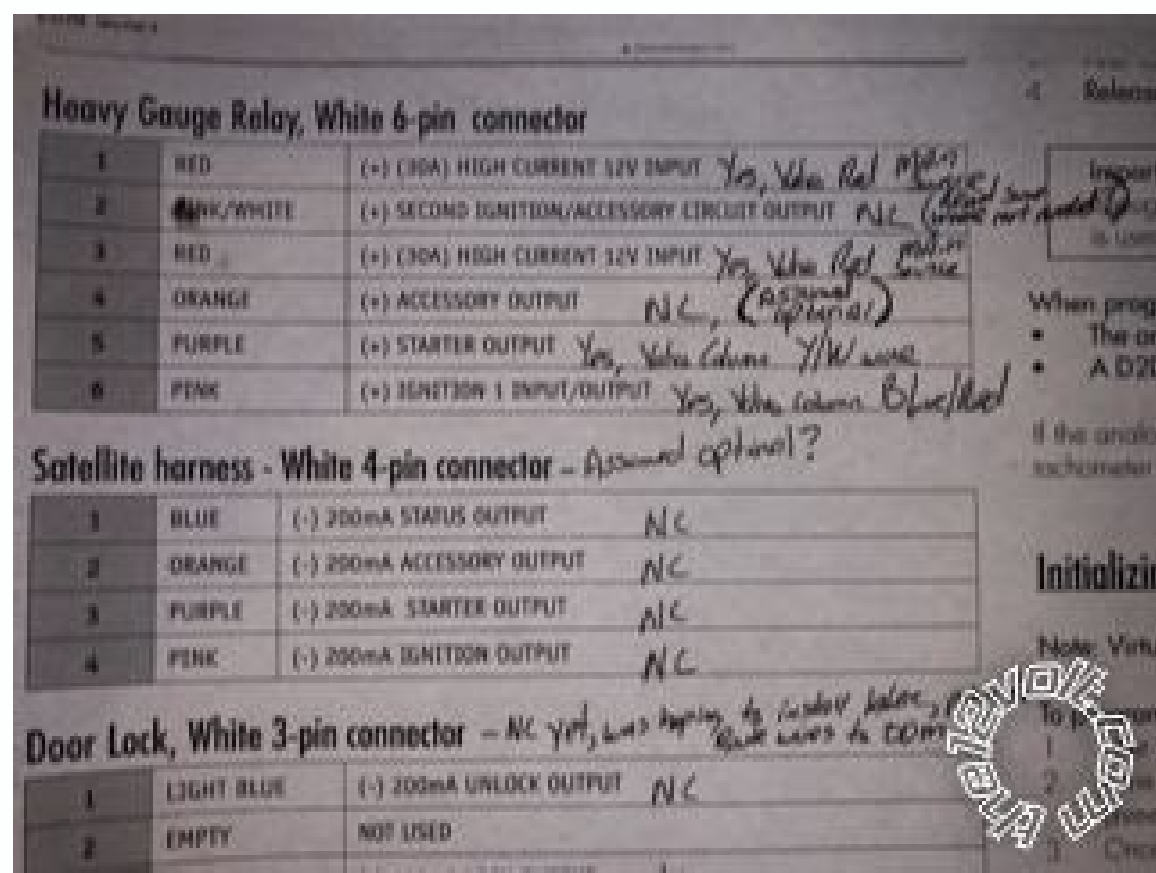 Heavy Gauge Relay, White 6-pin connector
4 Release
1 RED (+) (30A) HIGH CURRENT 12V INPUT Yes, Red
2 NK/WHITE (+) SECOND IGNITION/ACCESSORY CIRCUIT OUTPUT NC
3 RED (+) (30A) HIGH CURRENT 12V INPUT Yes, Red
4 ORANGE (+) ACCESSORY OUTPUT NC, (Assumed optional)
When prog
5 PURPLE (+) STARTER OUTPUT Yes, Column Y/W wire
6 PINK (+) IGNITION 1 INPUT/OUTPUT Yes, Column Blue/Red
A D2D
If the analo
tachometer
Satellite harness - White 4-pin connector - Assumed optional?
1 BLUE (-) 200mA STATUS OUTPUT NC
2 ORANGE (-) 200mA ACCESSORY OUTPUT NC
Initializin
3 PURPLE (-) 200mA STARTER OUTPUT NC
4 PINK (-) 200mA IGNITION OUTPUT NC
Note: Virtu
Door Lock, White 3-pin connector - NC yet, was hoping to wires to DDM
1 LIGHT BLUE (-) 200mA UNLOCK OUTPUT NC
2 EMPTY NOT USED
the12volt.com